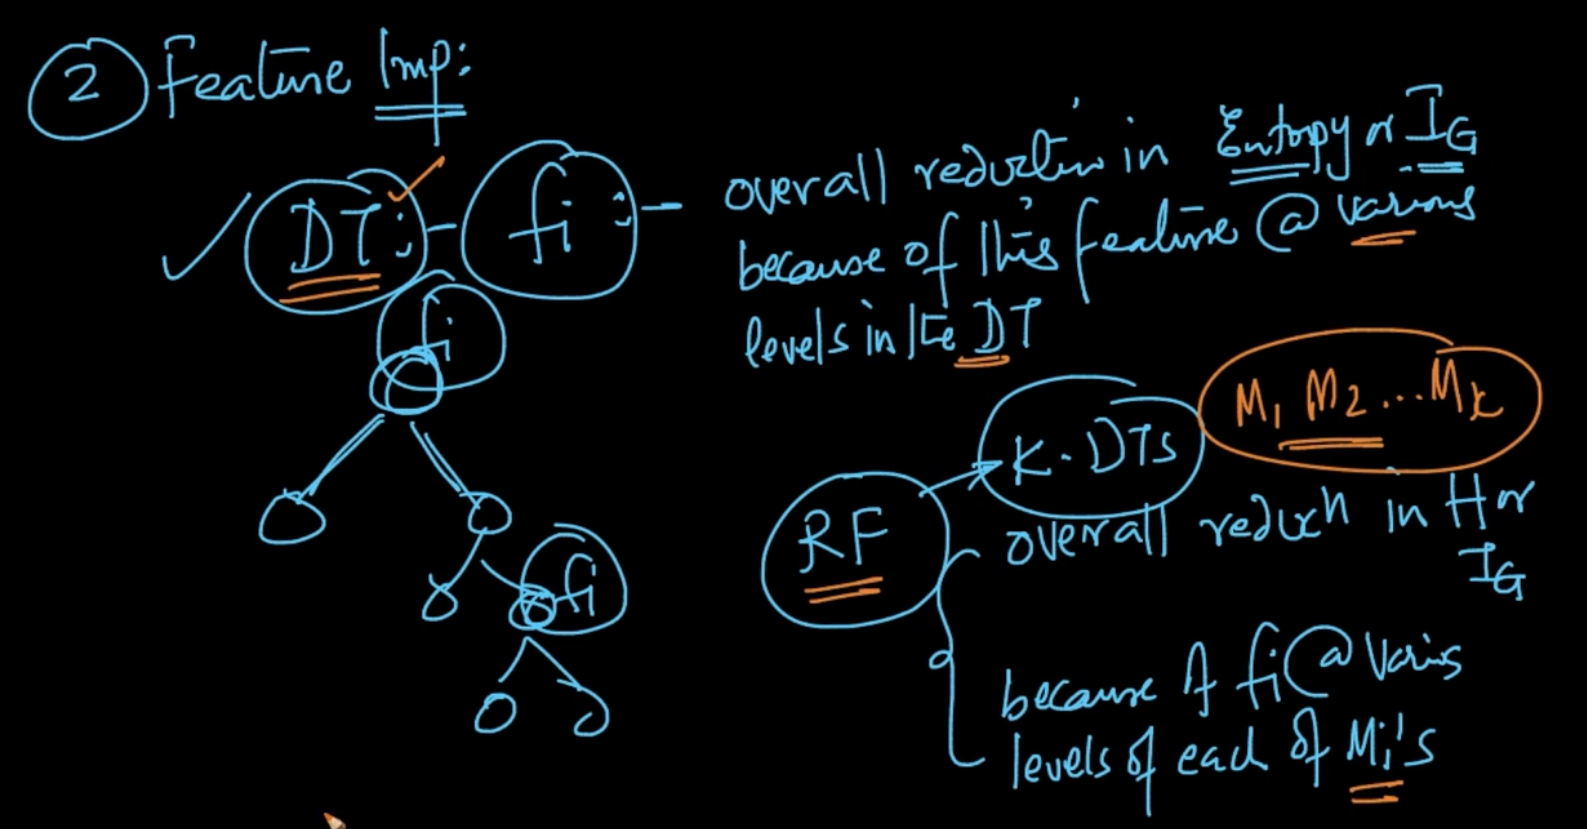 2 Feature Imp:
DT: - fi : - overall reduction in Entropy or IG
because of this feature @ various
levels in the DT
fi
fi
RF → K-DTs M1 M2 ... Mk
overall reducn in H or
IG
because of fi @ varis
levels of each of Mi's